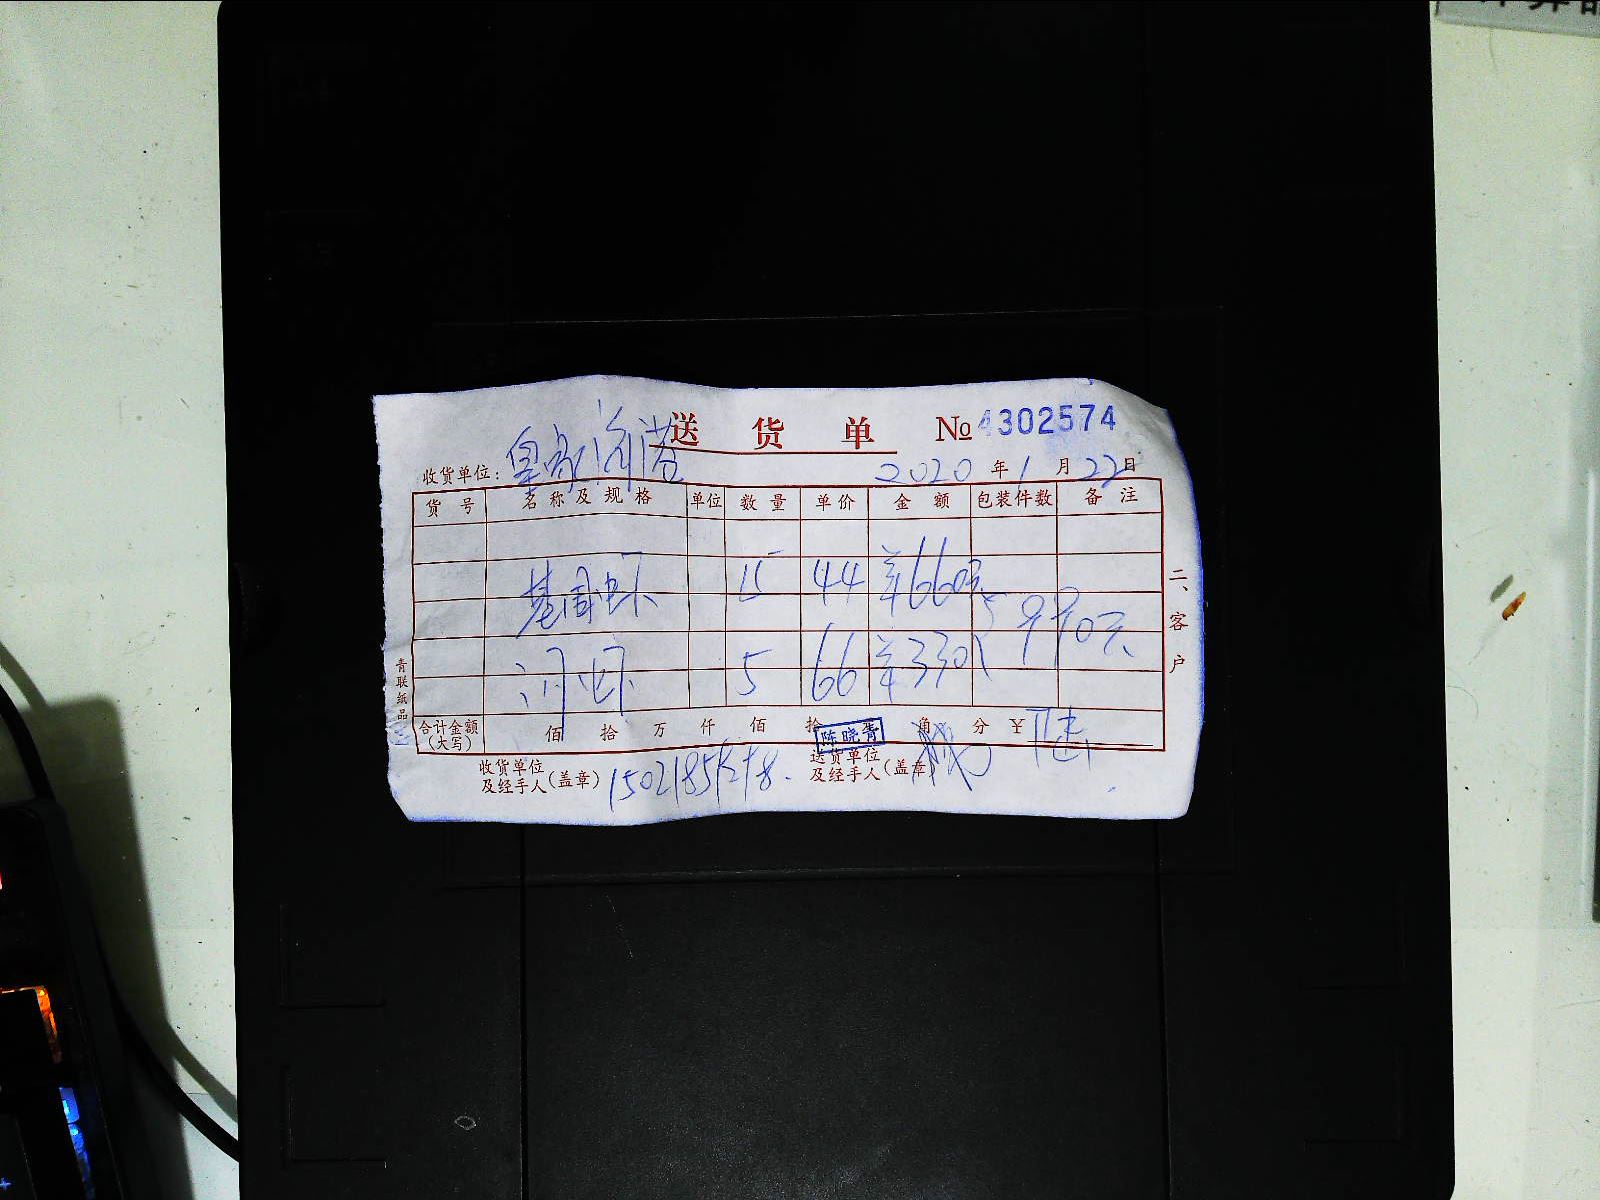 送货单 № 4302574
收货单位：皇家海港 2020 年 1 月 22 日
货号 名称及规格 单位 数量 单价 金额 包装件数 备注
基围虾 15 44 ¥660元
990元
河虾 5 66 ¥330
合计金额（大写） 佰 拾 万 仟 佰 拾 角 分 ¥
陈晓青
收货单位及经手人（盖章） 送货单位及经手人（盖章）
二、客户
青联纸品